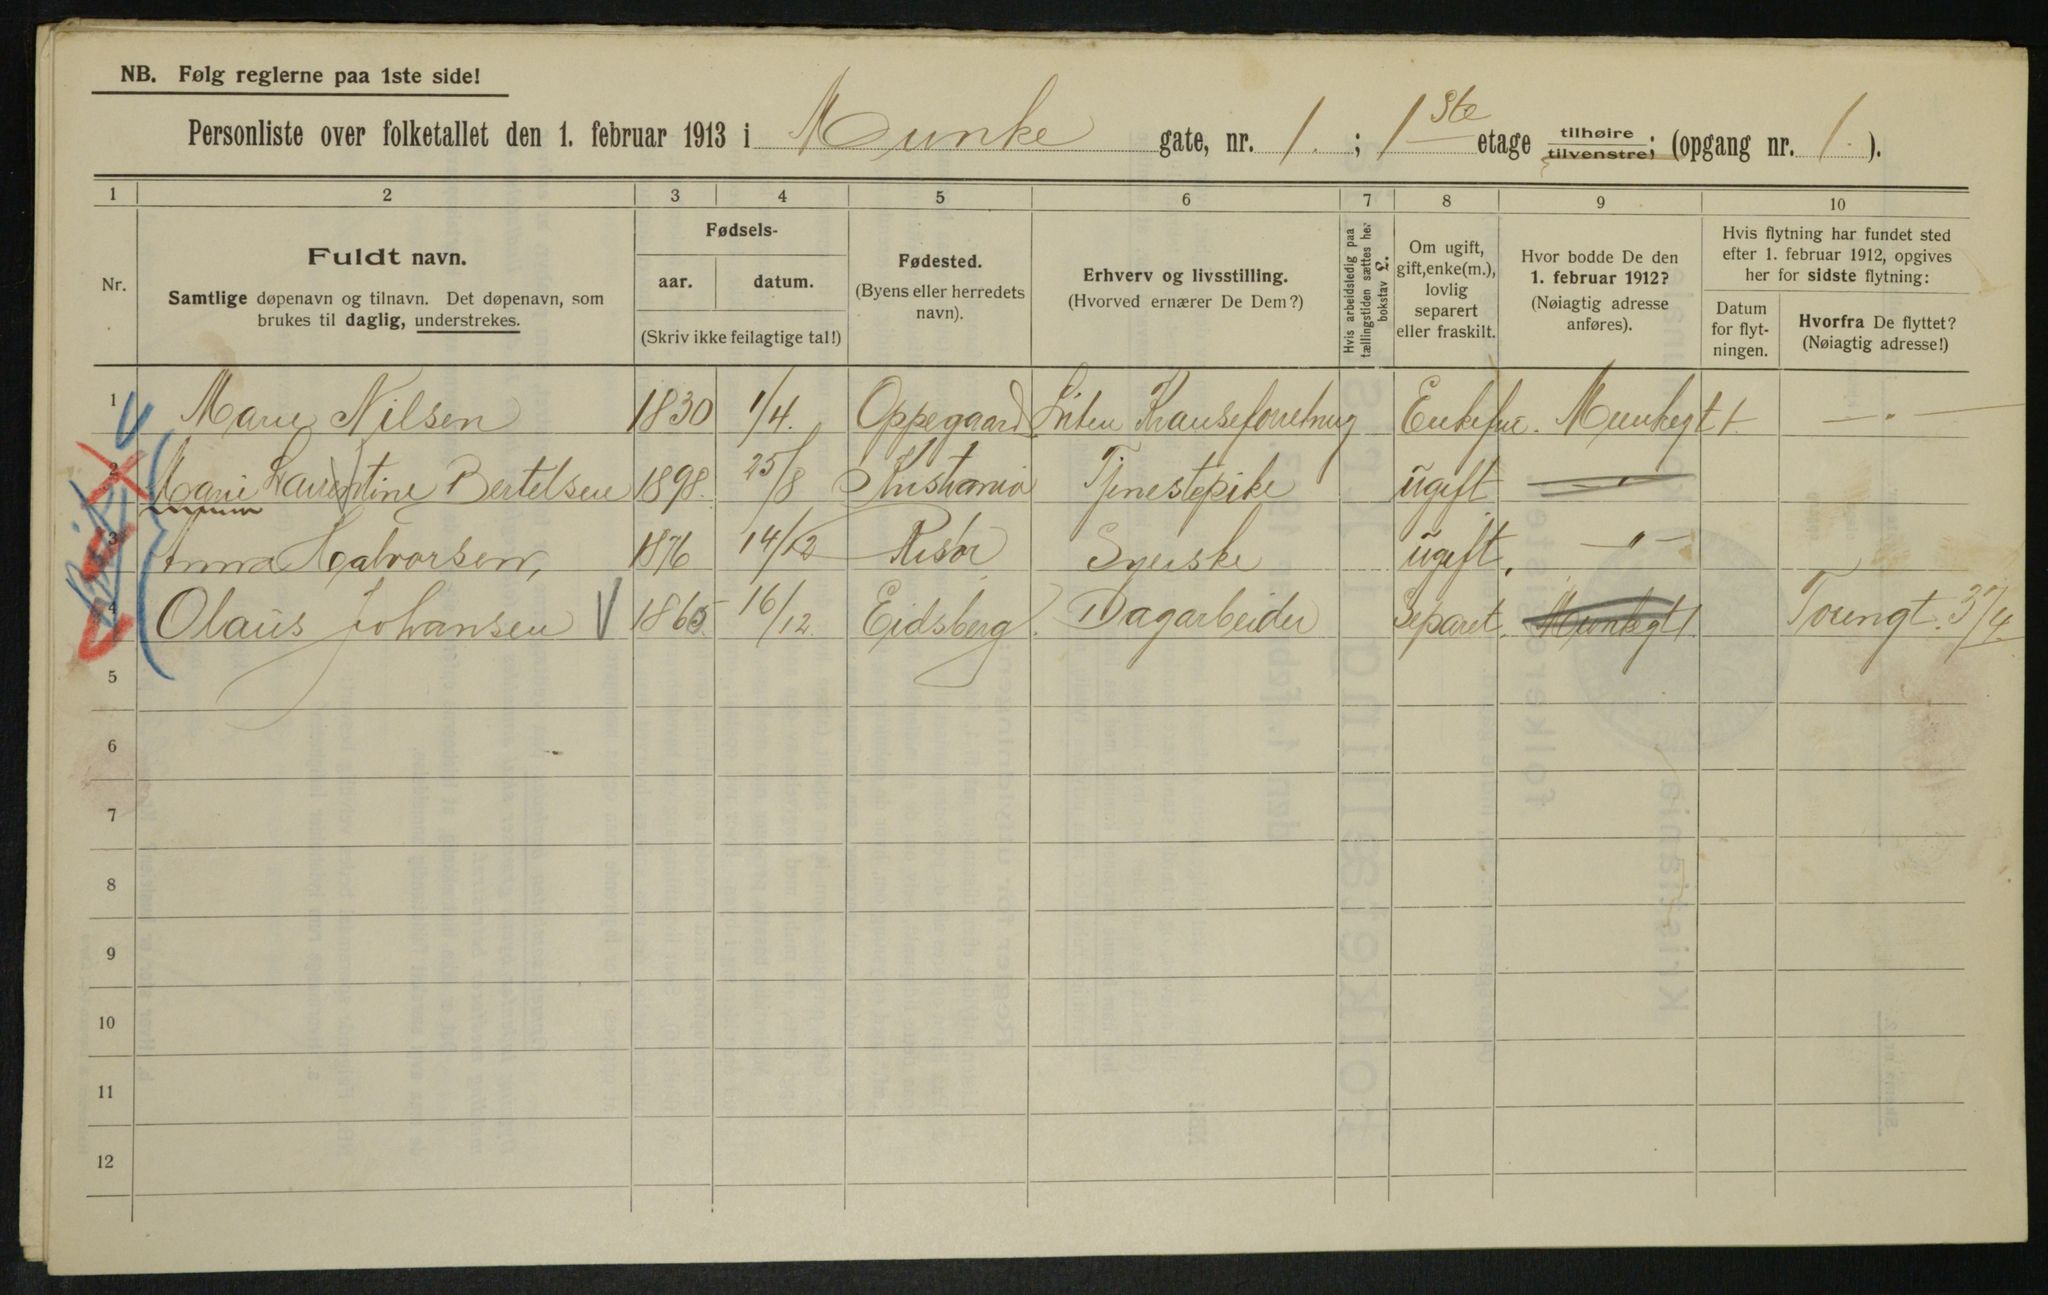 NB. Følg reglerne paa 1ste side!
Personliste over folketallet den 1. februar 1913 i Munke gate, nr. 1. ; 1ste etage tilhøire tilvenstre; (opgang nr. 1. ).
1 2 3 4 5 6 7 8 9 10
Nr.
Fuldt navn.
Samtlige døpenavn og tilnavn. Det døpenavn, som
brukes til daglig, understrekes.
Fødsels-
aar. datum.
(Skriv ikke feilagtige tal!)
Fødested.
(Byens eller herredets
navn).
Erhverv og livsstilling.
(Hvorved ernærer De Dem?)
Hvis arbeidsledig paa
tællingstiden sættes her
bokstav L.
Om ugift,
gift, enke(m.),
lovlig
separert
eller fraskilt.
Hvor bodde De den
1. februar 1912?
(Nøiagtig adresse
anføres).
Hvis flytning har fundet sted
efter 1. februar 1912, opgives
her for sidste flytning:
Datum
for flyt-
ningen.
Hvorfra De flyttet?
(Nøiagtig adresse!)
1 Marie Nilsen 1830 1/4. Oppegaard Liten Kranseforretnig Enkefue. Munkegt 1 — " —
2 Marie Laurentine Bertelsen 1898. 25/8 Kristiania Tjenestepike ugift — " —
3 Anna Halvorsen, 1876 14/12 Risør Syerske ugift. — " —
4 Olaus Johansen V 1865. 16/12 Eidsberg. Dagarbeider Separet. Munkegt 1 Toiengt. 37/4
5
6
7
8
9
10
11
12